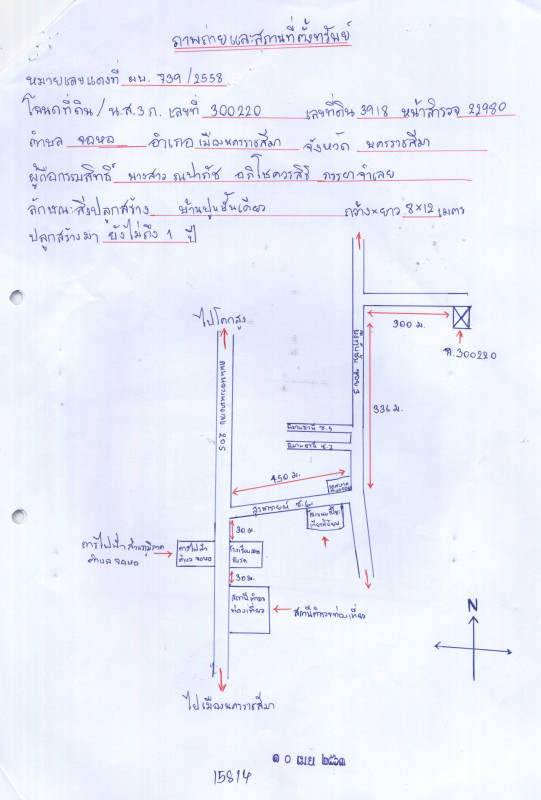 ภาพถ่ายและสถานที่ตั้งทรัพย์
หมายเลขแดงที่ ผบ. 739/2558
โฉนดที่ดิน / น.ส.3 ก. เลขที่ 300220 เลขที่ดิน 3918 หน้าสำรวจ 22980
ตำบล จอหอ อำเภอ เมืองนครราชสีมา จังหวัด นครราชสีมา
ผู้ถือกรรมสิทธิ์ นางสาว ณปาภัช อภิโชควรสิริ ภรรยาจำเลย
ลักษณะสิ่งปลูกสร้าง บ้านปูนชั้นเดียว กว้าง×ยาว 8×12 เมตร
ปลูกสร้างมา ยังไม่ถึง 1 ปี
ไปโคกสูง
300 ม.
ฉ.300220
ถนนทางหลวง 205
ซอย 3
336 ม.
ซ.3
ซ.2
450 ม.
ซ.6
30 ม.
การไฟฟ้าส่วนภูมิภาค
ตำบล จอหอ
การไฟฟ้า
ตำบล จอหอ
30 ม.
สถานีตำรวจ
ท่องเที่ยว
สถานีตำรวจท่องเที่ยว
N
ไปเมืองนครราชสีมา
๑๐ เมย ๒๕๖๑
15814